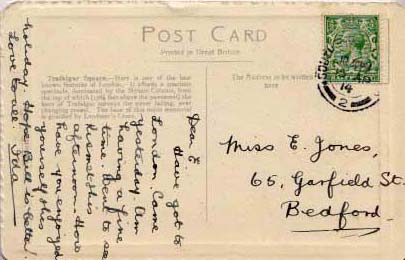 POST CARD
Printed in Great Britain.
Trafalgar Square.—Here is one of the best
known features of London. It affords a spacious
spectacle, dominated by the Nelson Column, from
the top of which
base of Trafalgar surveys the never fading, ever
changing crowd. The base of this noble memorial
is guarded by Landseer's Lions.
The Address to be written
here
14
2
Dear E
Have got to
London. Came
yesterday. Am
having a fine
time. Went to see
Kismet this
afternoon. How
have you enjoyed
yourself this
holiday. Hope Bill is better.
Love to all. Ida
Miss E. Jones,
65, Garfield St.
Bedford.